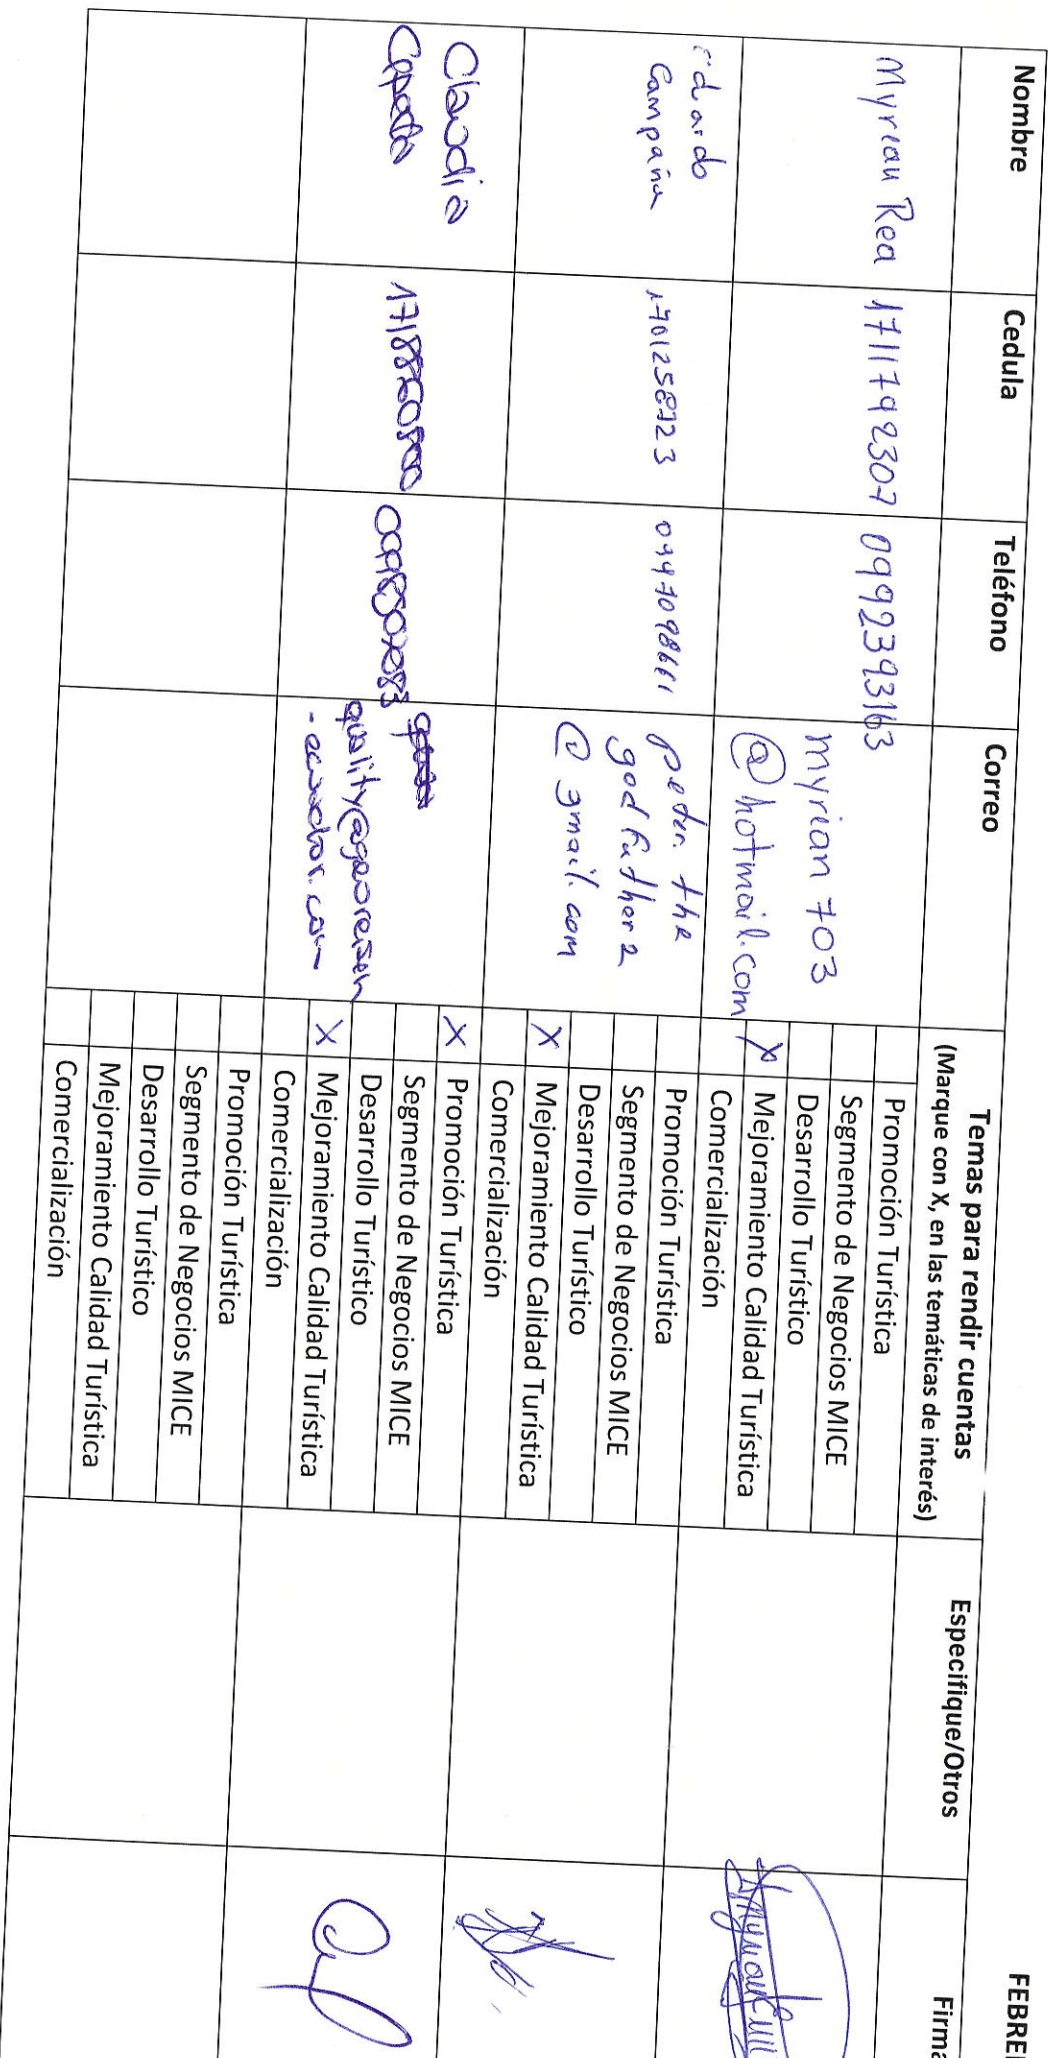 FEBRE
Nombre
Cedula
Teléfono
Correo
Temas para rendir cuentas
(Marque con X, en las temáticas de interés)
Especifique/Otros
Firma
Myrian Rea
1711792307
0992393163
myrian703
@hotmail.com
Promoción Turística
Segmento de Negocios MICE
Desarrollo Turístico
X Mejoramiento Calidad Turística
Comercialización
Campaña
peter.the
godfather2
@gmail.com
Promoción Turística
Segmento de Negocios MICE
Desarrollo Turístico
X Mejoramiento Calidad Turística
Comercialización
Claudia
1718860800
quality@georeisen
-ecuador.com
X Promoción Turística
Segmento de Negocios MICE
Desarrollo Turístico
X Mejoramiento Calidad Turística
Comercialización
Promoción Turística
Segmento de Negocios MICE
Desarrollo Turístico
Mejoramiento Calidad Turística
Comercialización